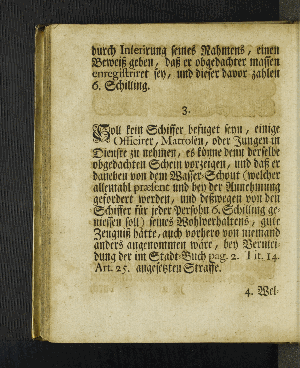 durch Inserirung seines Nahmens, einen
Beweiß geben, daß er obgedachter massen
enregistriret sey, und dieser davor zahlen
6. Schilling.
3.
Soll kein Schiffer befuget seyn, einige
Officirer, Matrosen, oder Jungen in
Dienste zu nehmen, es könne denn derselbe
obgedachten Schein vorzeigen, und daß er
daneben von dem Wasser-Schout (welcher
allemahl præsent und bey der Annehmung
gefordert werden, und deßwegen von den
Schiffer für jeder Persohn 6. Schilling ge-
niessen soll) seines Wohlverhaltens, gute
Zeugniß hätte, auch vorhero von niemand
anders angenommen wäre, bey Vermei-
dung der im Stadt-Buch pag. 2. Tit. 14.
Art. 25. angesetzten Straffe.
4. Wel-